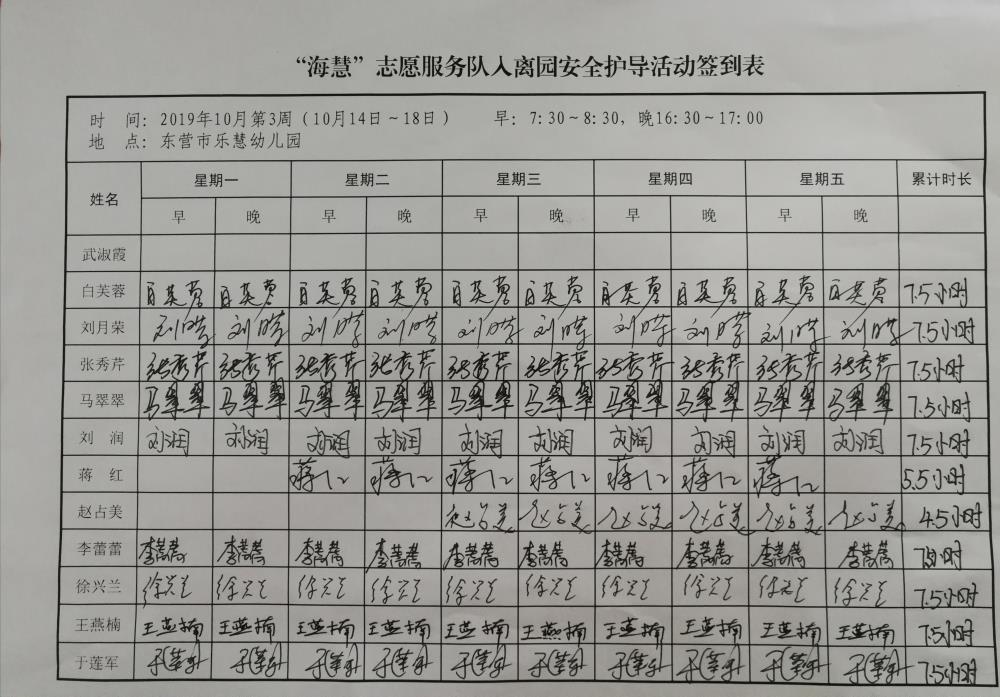 “海慧”志愿服务队入离园安全护导活动签到表
时 间：2019年10月第3周（10月14日～18日） 早：7:30～8:30，晚16:30～17:00
地 点：东营市乐慧幼儿园
姓名 星期一 星期二 星期三 星期四 星期五 累计时长
早 晚 早 晚 早 晚 早 晚 早 晚
武淑霞
白芙蓉 白芙蓉 白芙蓉 白芙蓉 白芙蓉 白芙蓉 白芙蓉 白芙蓉 白芙蓉 白芙蓉 白芙蓉 7.5小时
刘月荣 刘月荣 刘月荣 刘月荣 刘月荣 刘月荣 刘月荣 刘月荣 刘月荣 刘月荣 刘月荣 7.5小时
张秀芹 张秀芹 张秀芹 张秀芹 张秀芹 张秀芹 张秀芹 张秀芹 张秀芹 张秀芹 张秀芹 7.5小时
马翠翠 马翠翠 马翠翠 马翠翠 马翠翠 马翠翠 马翠翠 马翠翠 马翠翠 马翠翠 马翠翠 7.5小时
刘 润 刘润 刘润 刘润 刘润 刘润 刘润 刘润 刘润 刘润 刘润 7.5小时
蒋 红 蒋红 蒋红 蒋红 蒋红 蒋红 蒋红 蒋红 5.5小时
赵占美 赵占美 赵占美 赵占美 赵占美 赵占美 赵占美 4.5小时
李蕾蕾 李蕾蕾 李蕾蕾 李蕾蕾 李蕾蕾 李蕾蕾 李蕾蕾 李蕾蕾 李蕾蕾 李蕾蕾 李蕾蕾 小时
徐兴兰 徐兴兰 徐兴兰 徐兴兰 徐兴兰 徐兴兰 徐兴兰 徐兴兰 徐兴兰 徐兴兰 徐兴兰 7.5小时
王燕楠 王燕楠 王燕楠 王燕楠 王燕楠 王燕楠 王燕楠 王燕楠 王燕楠 王燕楠 王燕楠 7.5小时
于莲军 于莲军 于莲军 于莲军 于莲军 于莲军 于莲军 于莲军 于莲军 于莲军 于莲军 7.5小时